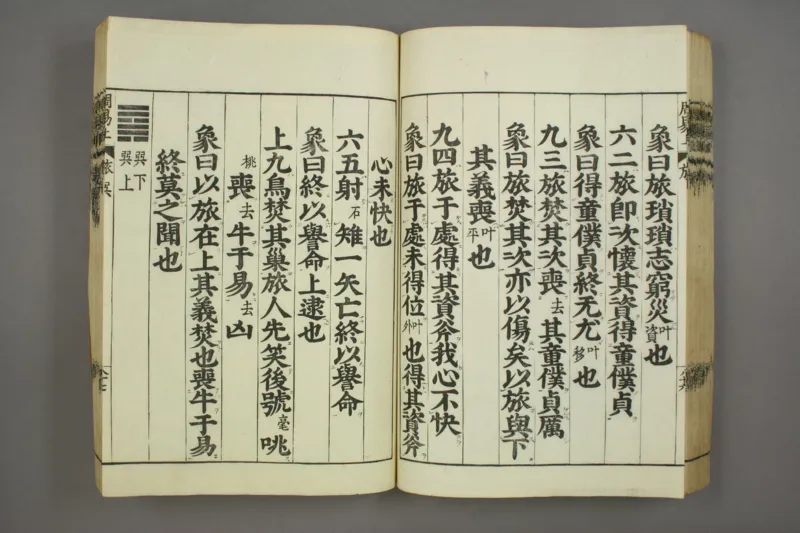 象曰旅瑣瑣志窮災叶資也
六二旅即次懷其資得童僕貞
象曰得童僕貞終无尤叶移也
九三旅焚其次喪去其童僕貞厲
象曰旅焚其次亦以傷矣以旅與下
其義喪叶平也
九四旅于處得其資斧我心不快
象曰旅于處未得位叶外也得其資斧
心未快也
六五射石雉一矢亡終以譽命
象曰終以譽命上逮也
上九鳥焚其巢旅人先笑後號毫咷
桃喪去牛于易去凶
象曰以旅在上其義焚也喪牛于易
終莫之聞也
巽下
巽上
周易上 旅巽